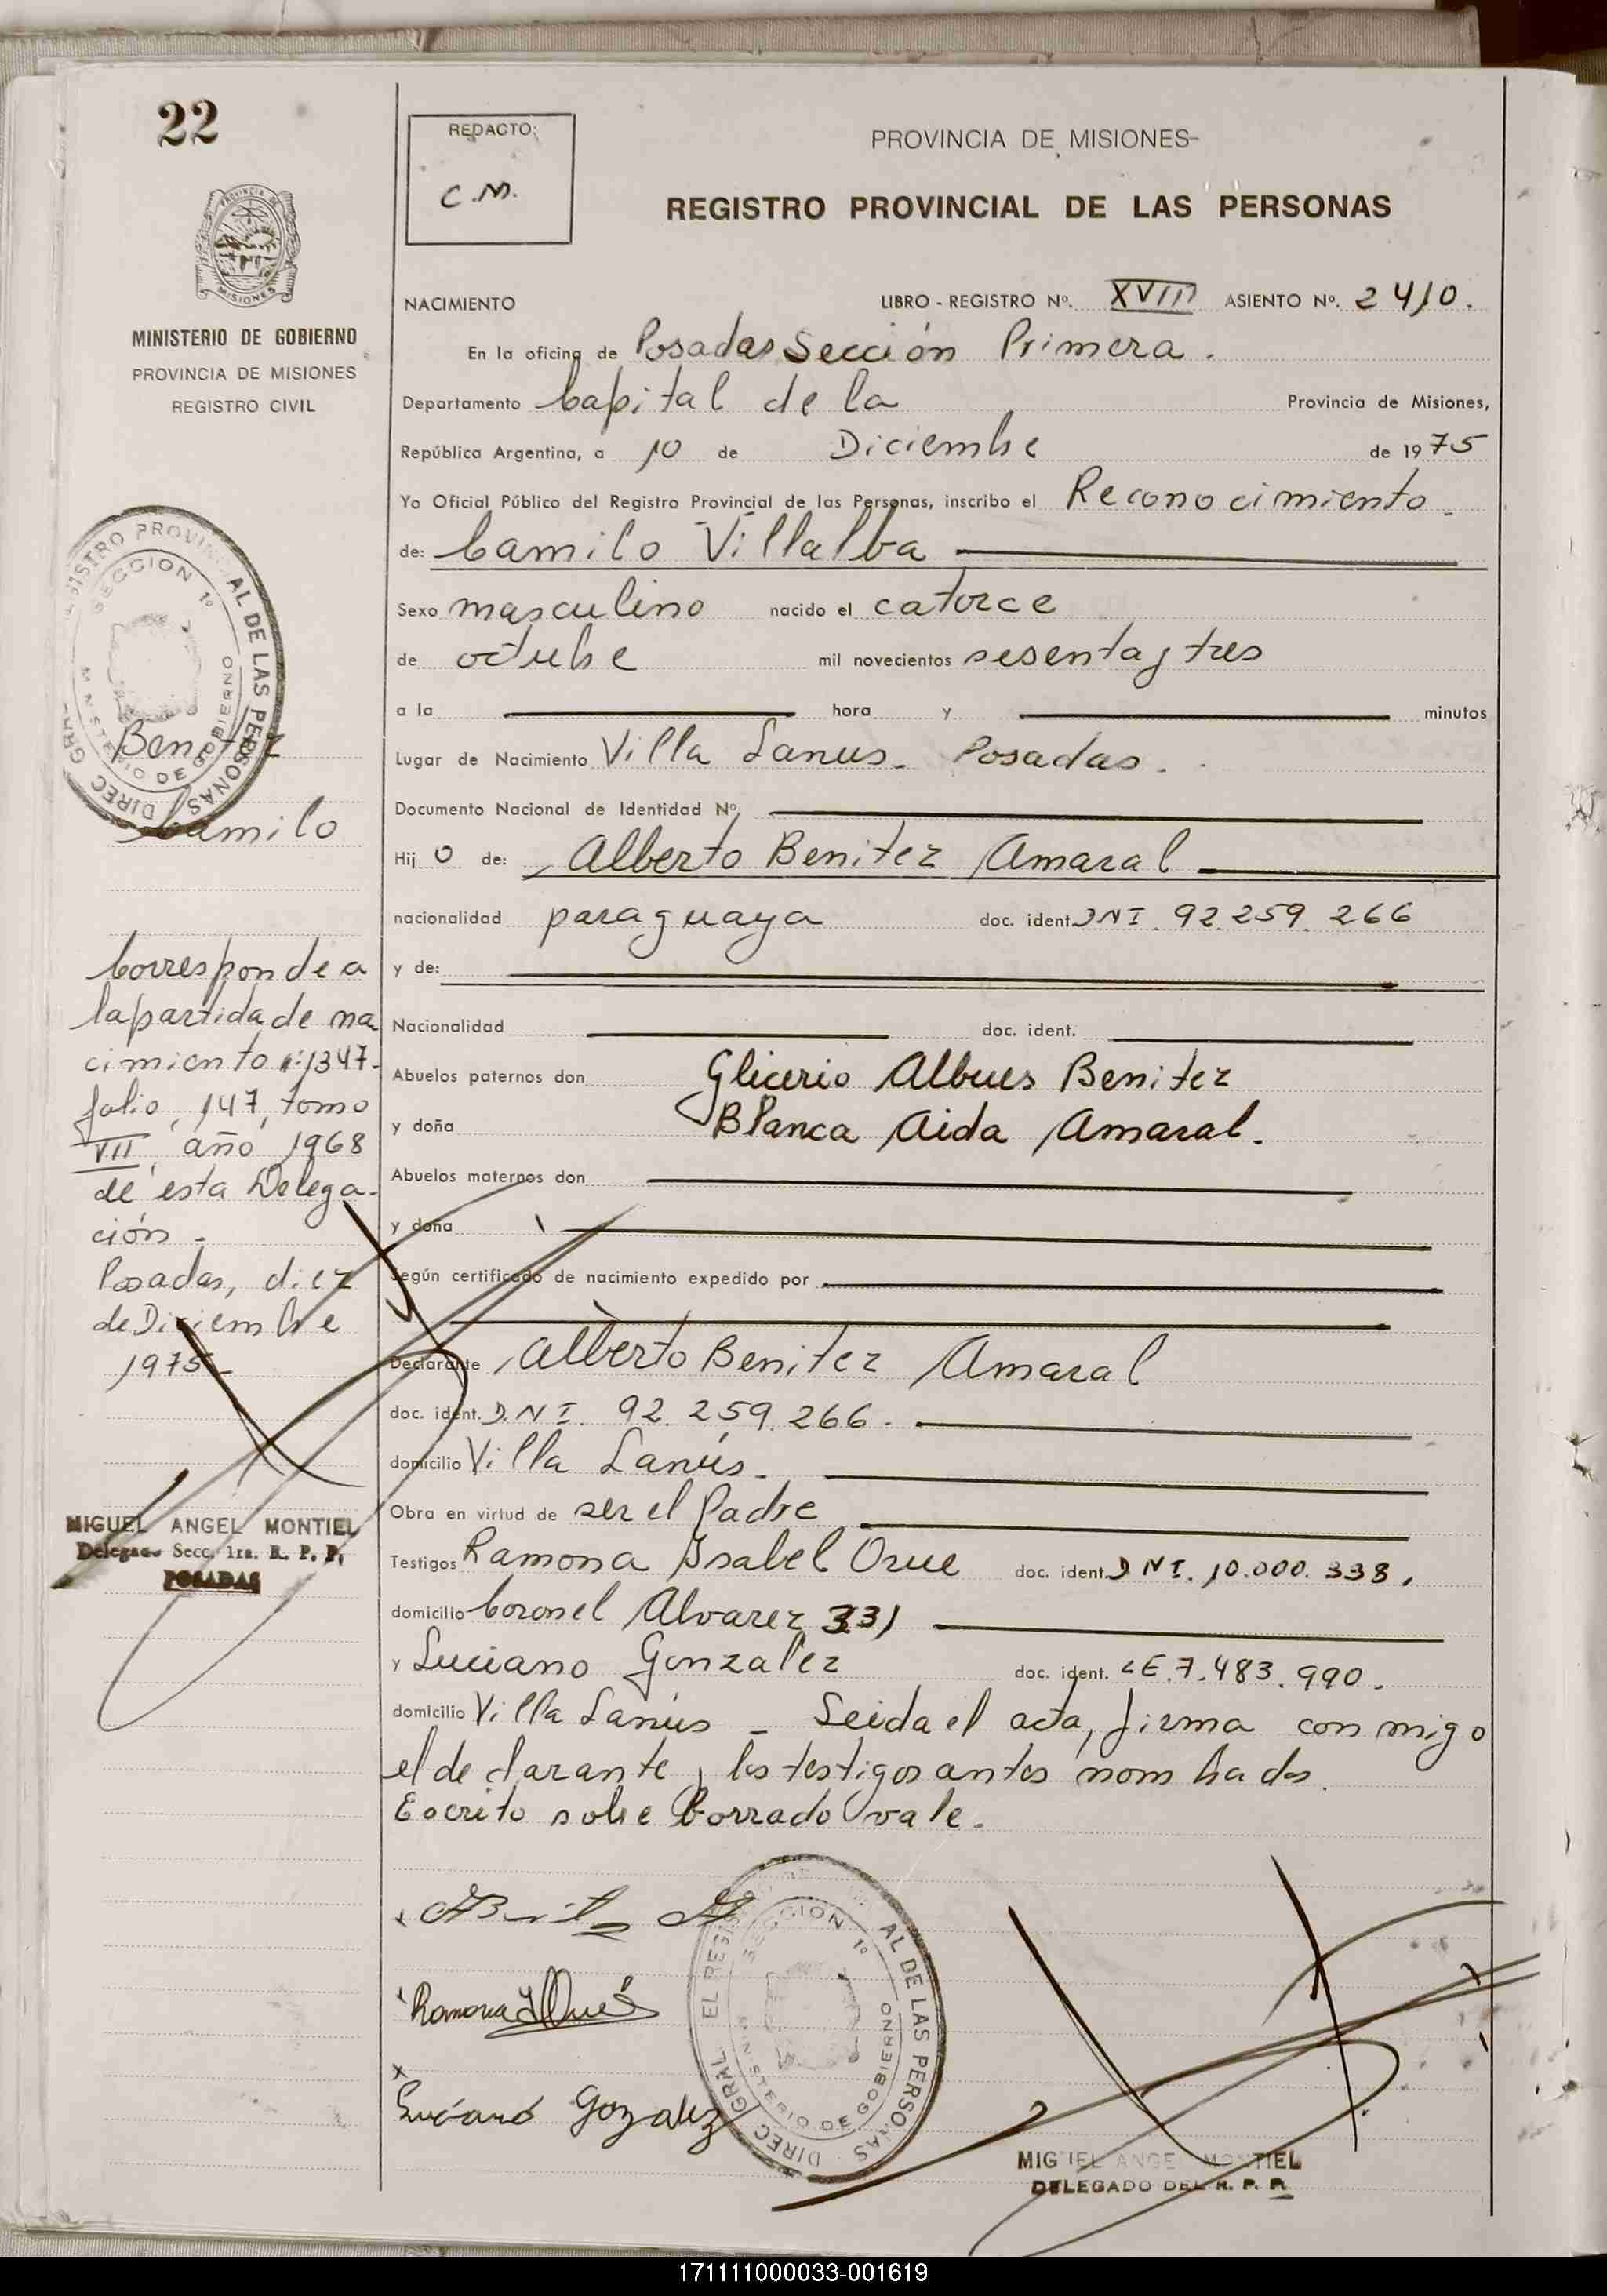 22
REDACTO:
C.M.
PROVINCIA DE MISIONES-
REGISTRO PROVINCIAL DE LAS PERSONAS
MISIONES
MINISTERIO DE GOBIERNO
PROVINCIA DE MISIONES
REGISTRO CIVIL
NACIMIENTO LIBRO - REGISTRO Nº. XVIII ASIENTO Nº. 2410.
En la oficina de Posadas Sección Primera.
Departamento Capital de la Provincia de Misiones,
República Argentina, a 10 de Diciembre de 1975
Yo Oficial Público del Registro Provincial de las Personas, inscribo el Reconocimiento
de: Camilo Villalba
Sexo masculino nacido el catorce
de octubre mil novecientos sesenta y tres
a la hora y minutos
Lugar de Nacimiento Villa Lanus - Posadas.
Documento Nacional de Identidad Nº
Hij o de: Alberto Benitez Amaral
nacionalidad paraguaya doc. ident. DNI. 92.259.266
y de:
Nacionalidad doc. ident.
Abuelos paternos don Glicerio Albues Benitez
y doña Blanca Aida Amaral.
Abuelos maternos don
y doña
Según certificado de nacimiento expedido por
Declarante Alberto Benitez Amaral
doc. ident. D.N.I. 92.259.266.
domicilio Villa Lanús -
Obra en virtud de ser el Padre
Testigos Ramona Isabel Orue doc. ident. DNI. 10.000.338,
domicilio Coronel Alvarez 331
y Luciano Gonzalez doc. ident. LE. 7.483.990.
domicilio Villa Lanús - Leida el acta, firma conmigo
el declarante y los testigos antes nombrados.
Escrito sobre borrado vale.
Benitez
Camilo
Corresponde a
la partida de na
cimiento nº 1347-
folio, 147, tomo
VII, año, 1968
de esta Delega-
ción -
Posadas, diez
de Diciembre
1975-
MIGUEL ANGEL MONTIEL
Delegado Secc. 1ra. R. P. P.
POSADAS
DIREC GRAL REGISTRO PROVINCIAL DE LAS PERSONAS
SECCION 1º
MINISTERIO DE GOBIERNO
Ramona I Orué
Luciano Gozalez
DIREC GRAL EL REGIS AL DE LAS PERSONAS
SECCION 1º
MINISTERIO DE GOBIERNO
MIGUEL ANGEL MONTIEL
DELEGADO DEL R. P. P.
171111000033-001619